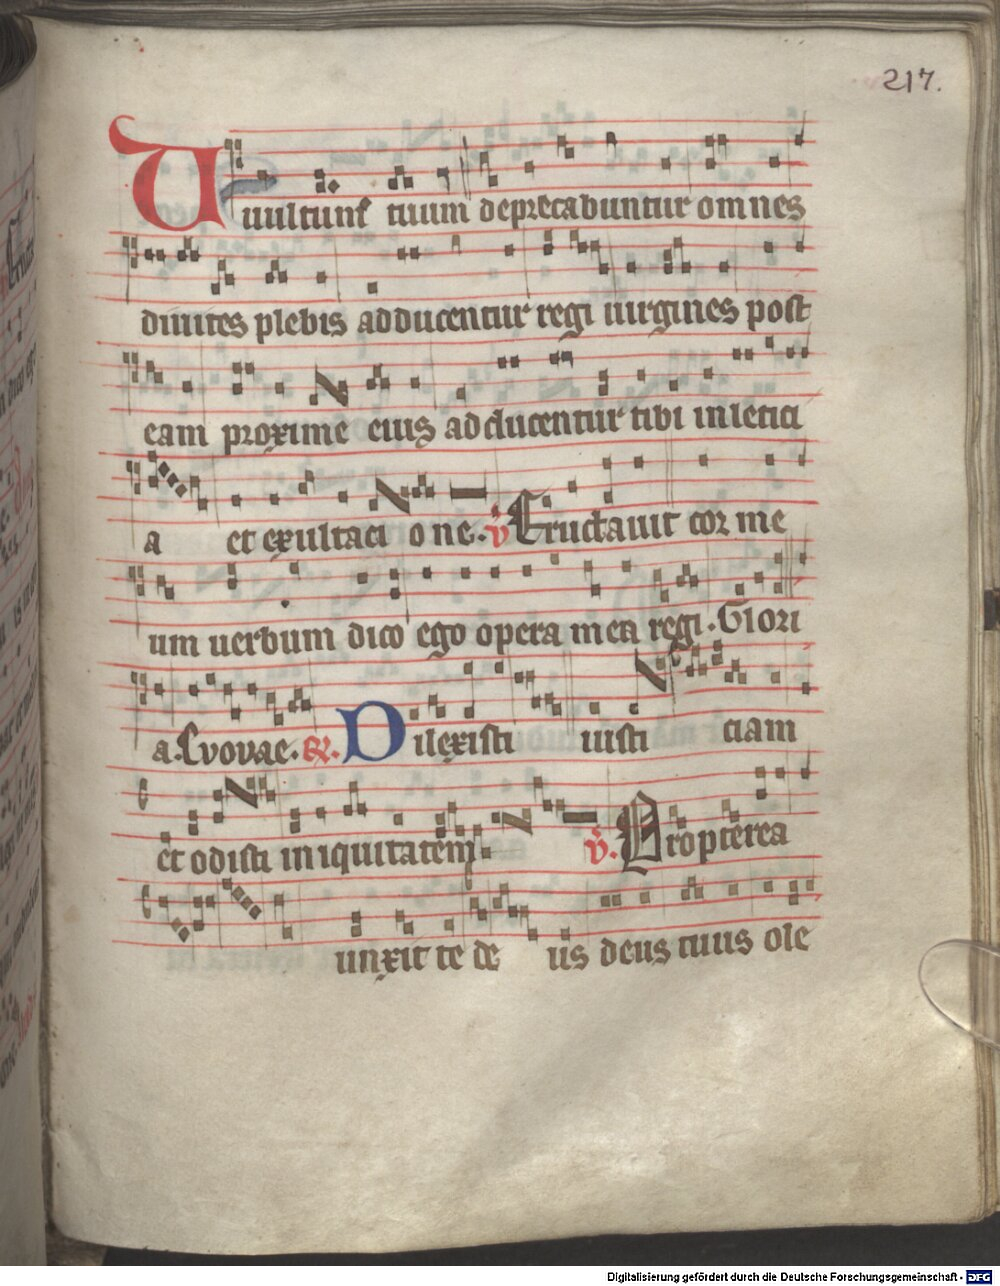 217.
Uuultum tuum deprecabuntur omnes
diuites plebis adducentur regi uirgines post
eam proxime eius adducentur tibi in letici
a et exultaci one. v Eructauit cor me
um uerbum dico ego opera mea regi. Glori
a. Evovae. Gr. Dilexisti iusti ciam
et odisti iniquitatem. v. Propterea
unxit te de us deus tuus ole
Digitalisierung gefördert durch die Deutsche Forschungsgemeinschaft - DFG